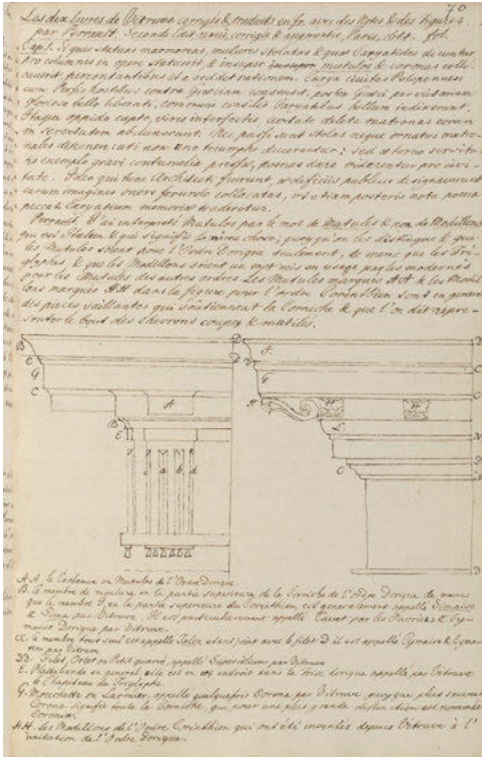 70
Les dix Livres de Vitruve corrigés & traduits en fr. avec des Notes & des Figures
par Perrault. Seconde Edit. revüe, corrigée & augmentée, Paris, 1684. fol.
Cap. 1. Si quis statuas marmoreas, muliebres stolatas & quae Caryatides dicuntur
pro columnis in opere statuerit, & insuper mutulos & coronas collo-
caverit, percontantibus ita reddet rationem. Carya civitas Peloponnesi
cum Persis hostibus contra Graeciam consensit, postea Graeci per victoriam
gloriose bello liberati, communi consilio Caryatibus bellum indixerunt.
Itaque oppido capto, viris interfectis, civitate deleta matronas eorum
in servitutem abduxerunt. Nec passi sunt stolas neque ornatus matro-
nales deponere uti non uno triumpho ducerentur; sed aeterno servitu-
tis exemplo gravi contumelia pressae, poenas dare viderentur pro civi-
tate. Ideo qui tunc Architecti fuerunt, aedificiis publicis designaverunt
earum imagines oneri ferundo collocatas, ut etiam posteris nota poena
peccati Caryatium memoriae traderetur.
Perrault. J'ai interpreté Mutulos par le mot de Mutules & non de Modillons
qui est Italien & qui signifie la même chose; quoy qu'on les distingue & que
les Mutules soient pour l'Ordre Dorique seulement, de même que les Tri-
glyphes, & que les Modillons soient un mot mis en usage par les modernes
pour les Mutules des autres ordres. Les Mutules marqués AA & les Modil-
lons marqués HH dans la figure pour l'ordre Corinthien sont en general
des pieces saillantes qui soutiennent la Corniche & que l'on dit repre-
senter le bout des chevrons coupez & mutilés.
B D D
C
G A G
C
H
B
E L
a b d
C
AA. le Corbeaux ou Mutules de l'Ordre Dorique
B. le membre de moulure en la partie superieure de la Corniche de l'ordre Dorique de même
que le membre F en la partie superieure du Corinthien est generalement appellé Simaise
& Sima par Vitruve. Il est particulierement appellé Cavet par les
Dorique par Vitruve.
CC. le membre tout seul est appellé Talon, étant joint avec le filet D il est appellé Cymaise & Cyma-
tium par Vitruve
DD. Filet, Orlet ou Petit quarré, appellé Supercilium par Vitruve
E. Platebande en general, elle est en cet endroit dans la frise dorique appellé par Vitruve
le Chapiteau du Triglyphe.
G. Mouchette ou Larmier, appellé quelquefois Corona par Vitruve, quoyque plus souvent
Corona signifie toute la Corniche, qui pour une plus grande distinction est nommée
Coronix.
HH. les Modillons de l'Ordre Corinthien qui ont été inventés depuis Vitruve à l'
imitation de l'Ordre Dorique.